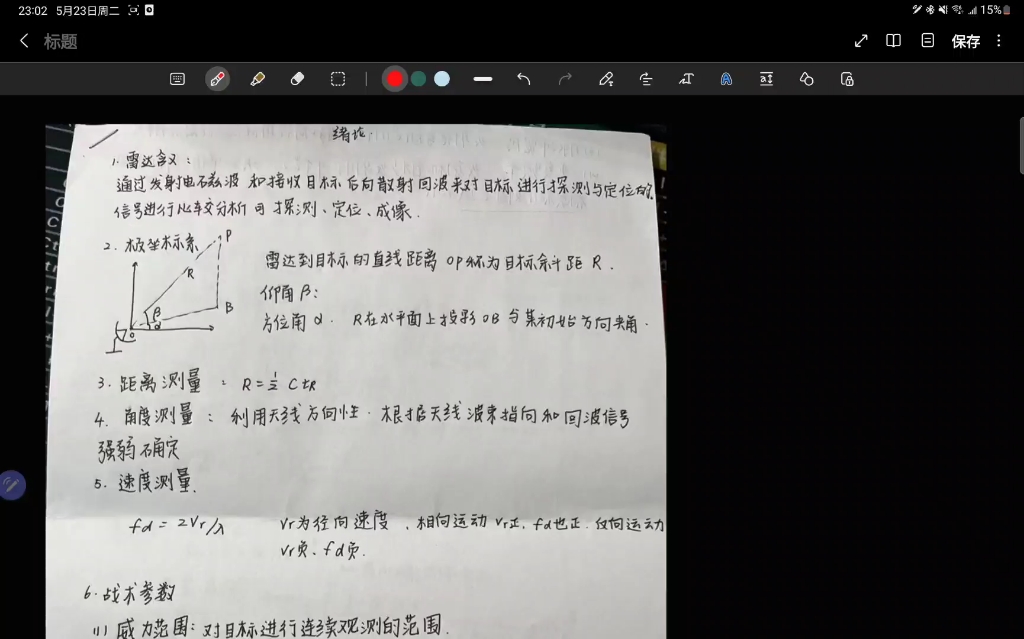 23:02 5月23日周二
15%
标题
保存
绪论
1. 雷达含义:
通过发射电磁波和接收目标后向散射回波来对目标进行探测与定位的.
信号进行频率分析可探测、定位、成像.
2. 极坐标系
P
R
B
β
α
O
雷达到目标的直线距离OP称为目标斜距R.
仰角β:
方位角α. R在水平面上投影OB与某初始方向夹角.
3. 距离测量: R=½ C tR
4. 角度测量: 利用天线方向性. 根据天线波束指向和回波信号
强弱确定
5. 速度测量.
fd = 2Vr/λ
Vr为径向速度, 相向运动Vr正, fd也正.
Vr负、fd负.
6. 战术参数
(1) 威力范围: 对目标进行连续观测的范围.